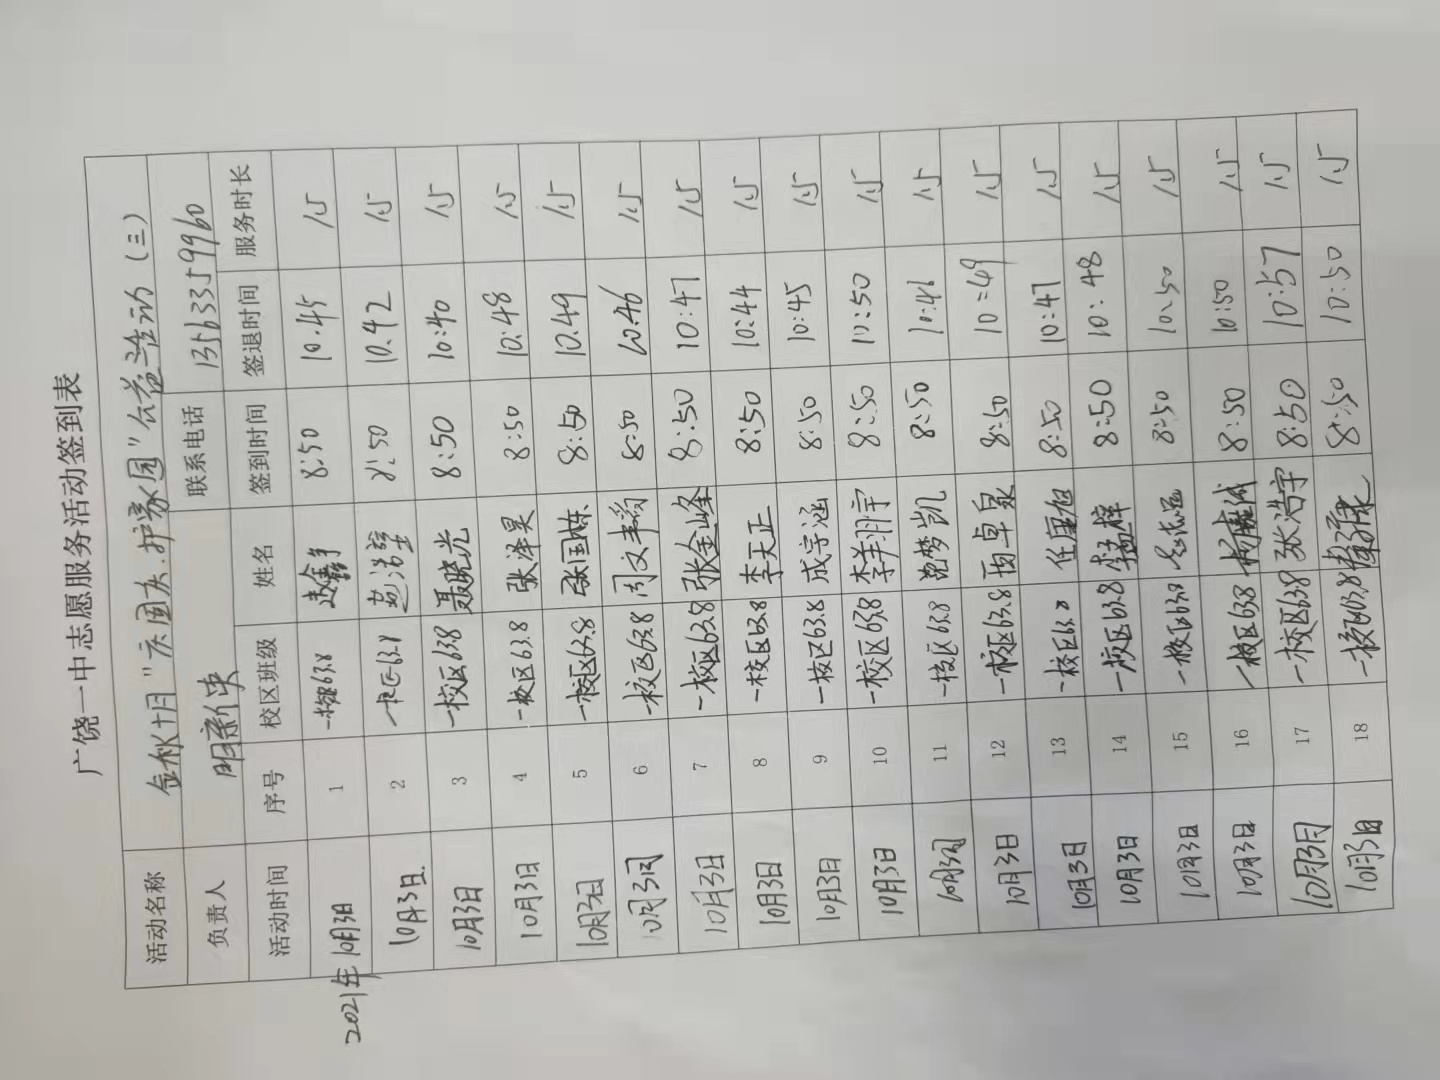 广饶一中志愿服务活动签到表
活动名称 金秋十月"庆国庆.护家园"公益活动(三)
负责人 明新中 联系电话 13563359960
活动时间 序号 校区班级 姓名 签到时间 签退时间 服务时长
2021年10月3日 1 一校区63.8 赵鑫 8:50 10.45 1.5
10月3日. 2 一校区63.8 赵浩 8:50 10.42 1.5
10月3日 3 一校区63.8 聂晓光 8:50 10:40 1.5
10月3日 4 一校区63.8 张泽昊 8:50 10:48 1.5
10月3日 5 一校区63.8 张国栋 8:50 10.49 1.5
10月3日 6 一校区63.8 周文 8:50 10:46 1.5
10月3日 7 一校区63.8 张金峰 8:50 10:47 1.5
10月3日 8 一校区63.8 李天正 8:50 10:44 1.5
10月3日 9 一校区63.8 成宇涵 8:50 10:45 1.5
10月3日 10 一校区63.8 李翔宇 8:50 10:50 1.5
10月3日 11 一校区63.8 范梦凯 8:50 10:46 1.5
10月3日 12 一校区63.8 卓泉 8:50 10:49 1.5
10月3日 13 一校区63.8 任康旭 8:50 10:47 1.5
10月3日 14 一校区63.8 李梓 8:50 10:48 1.5
10月3日 15 一校区63.8 8:50 10:50 1.5
10月3日 16 一校区63.8 8:50 10:50 1.5
10月3日 17 一校区63.8 张浩宇 8:50 10:57 1.5
10月3日 18 一校区63.8 8:50 10:50 1.5